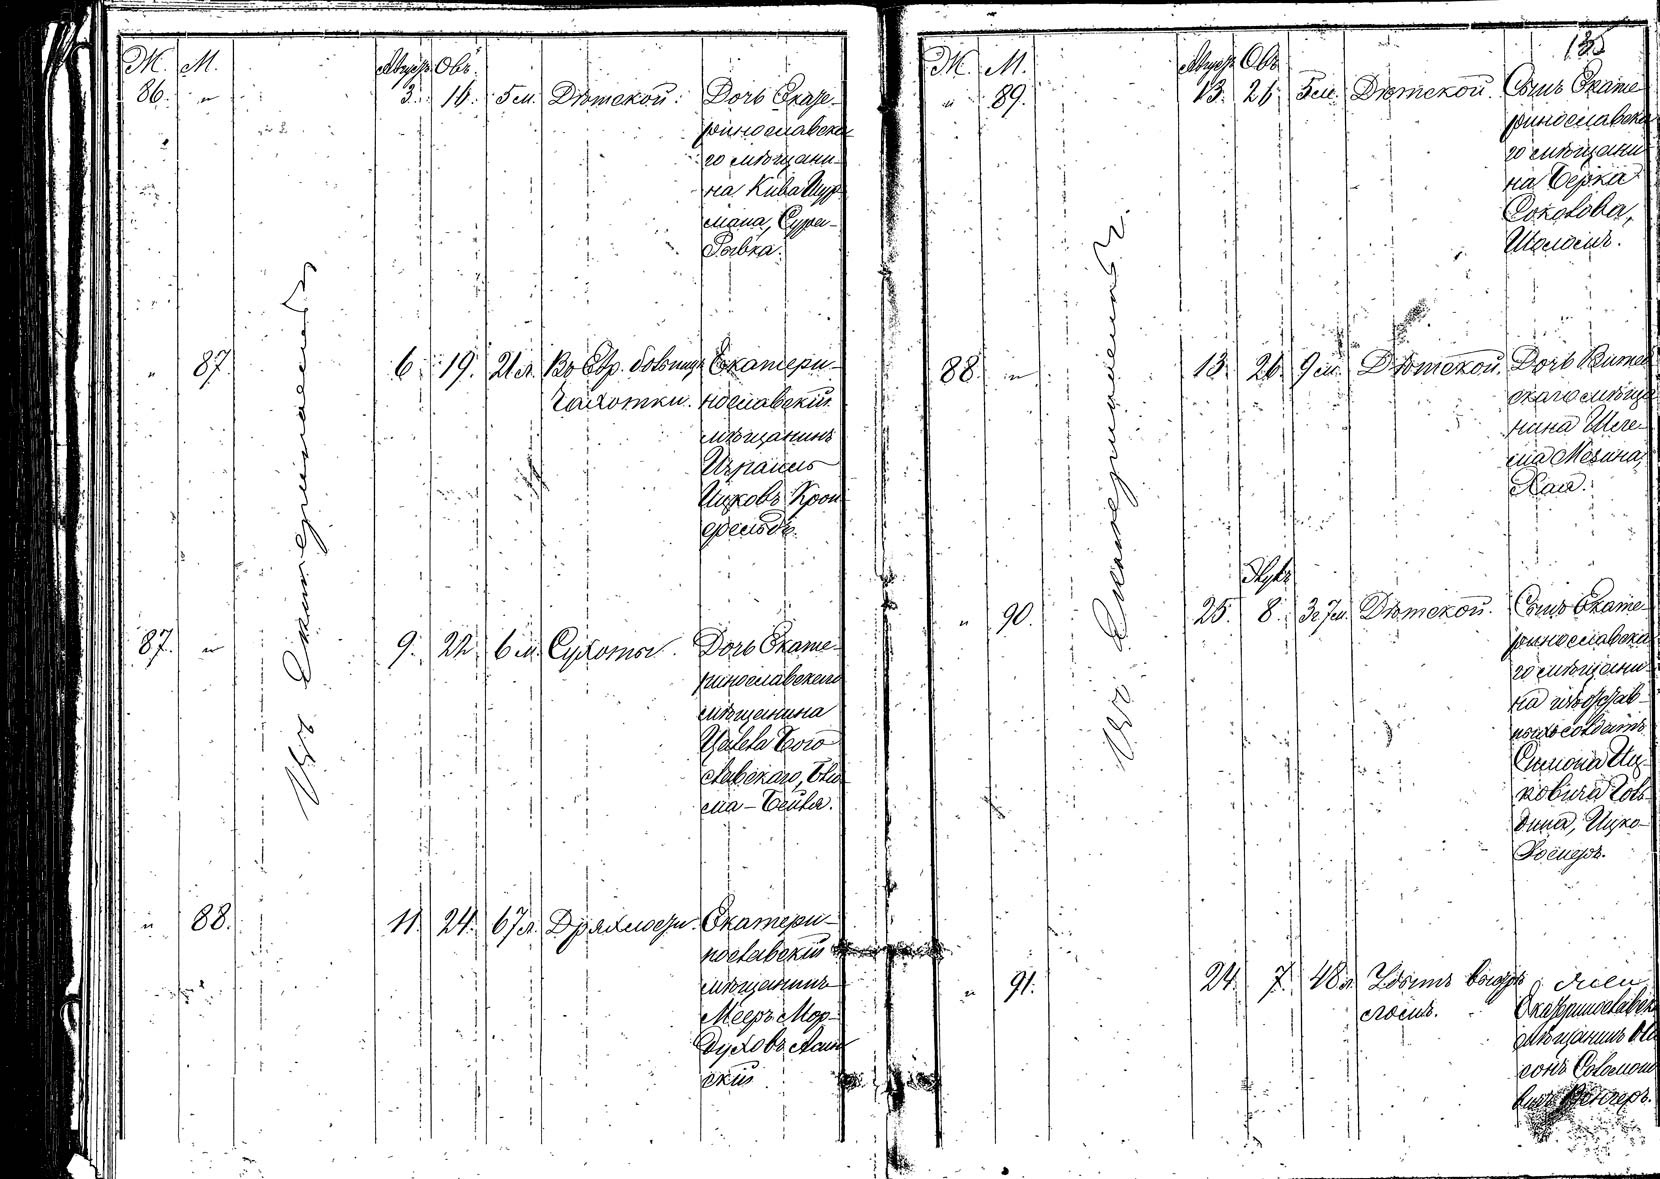 Ж. М. Августъ Овъ
86. " 3. 16. 5 м. Дѣтской. Дочь Екате-
ринославска
го мѣщани-
на Кива Шур
мана, Сура-
Рывка.
" 87. 6. 19. 21 л. Въ Евр. больницѣ Екатери-
Чахотки. нославскій
мѣщанинъ
Израиль
Ицковъ Крон
фельдъ.
87. " 9. 22. 6 м. Сухоты. Дочь Екате-
ринославскаго
мѣщанина
Бого
славскаго,
ма-Бейля.
" 88. 11. 24. 67 л. Дряхлости. Екатери-
нославскій
мѣщанинъ
Мееръ Мор-
духовъ Ясин
скій
Въ Екатеринославѣ
135
Ж. М. Августъ Овъ
" 89. 13. 26. 5 м. Дѣтской. Сынъ Екате-
ринославска
го мѣщани
на Берка
Соколова,
Шоломъ.
88. " 13. 26. 9 м. Дѣтской. Дочь Витеб
скаго мѣща
нина Шле-
ма Мезина,
Хая.
Элулъ
" 90. 25. 8. 3 г 7 м. Дѣтской. Сынъ Екате-
ринославска
го мѣщани-
на изъ отстав
ныхъ солдатъ
Симона Иц-
ковича
дина, Ицко-
" 91. 24. 7. 48 л. Убитъ
Екатеринославск
мѣщанинъ
сонъ Соломоно
вичъ Венгеръ.
Въ Екатеринославѣ